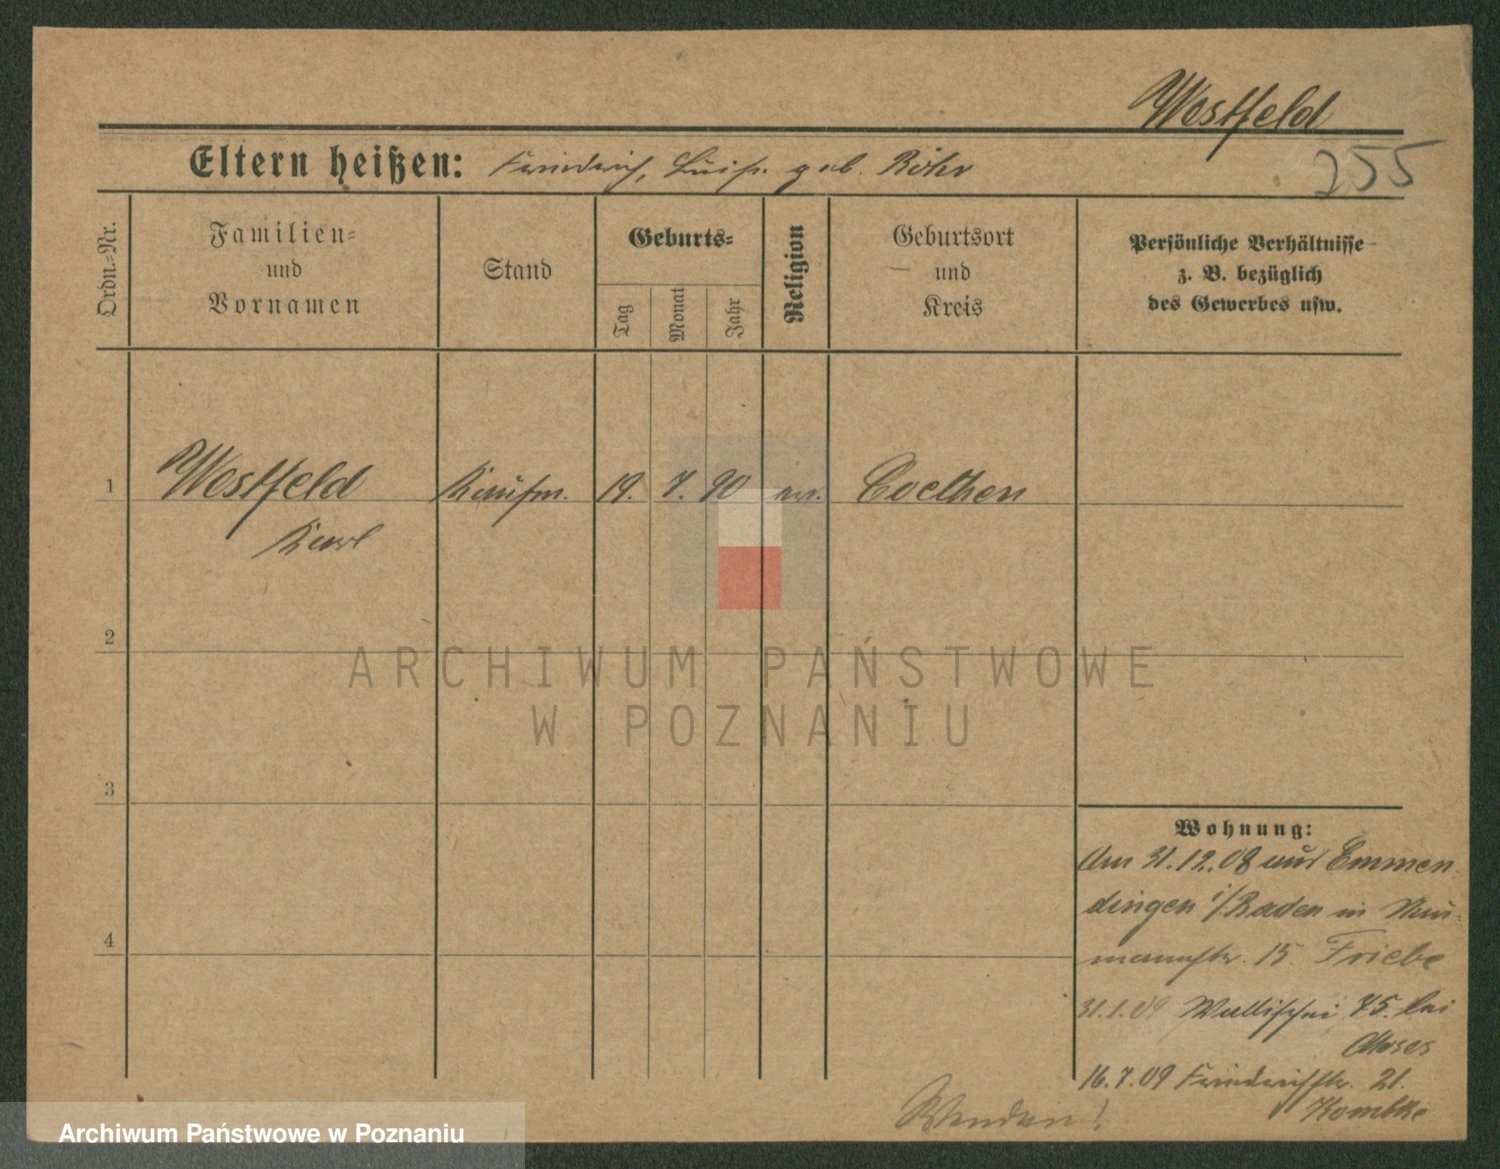 Westfeld
255
Eltern heißen: Friedrich, Luise geb. Röhr
Ordn.-Nr.
Familien- und Vornamen
Stand
Geburts-
Tag
Monat
Jahr
Religion
Geburtsort und Kreis
Persönliche Verhältnisse z. B. bezüglich des Gewerbes usw.
1 Westfeld Kaufm. 19. 7. 90 ev. Coethen
Karl
2
3
4
Wohnung:
Am 31.12.08 aus Emmen-
dingen i/Baden in Nau-
mannstr. 15. Friebe
31.1.09 Wallischei 75. bei
Moses
16.7.09 Friedrichstr. 21.
Kombke
Wenden!
ARCHIWUM PAŃSTWOWE
W POZNANIU
Archiwum Państwowe w Poznaniu